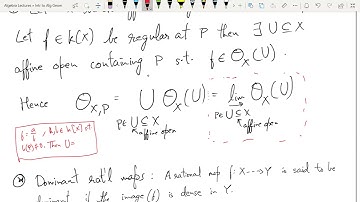 Algebra Lectures > Intr to Alg Geom
Let f ∈ k(X) be regular at P then ∃ U ⊆ X
affine open containing P s.t. f ∈ O_X(U)
Hence O_{X,P} = ∪ O_X(U) = lim O_X(U)
P∈U⊆X affine open
P∈U⊆X affine open
f = a/b,
Then U=
Dominant rat'l maps: A rational map f: X ⇢ Y is said to be
if the image(f) is dense in Y.